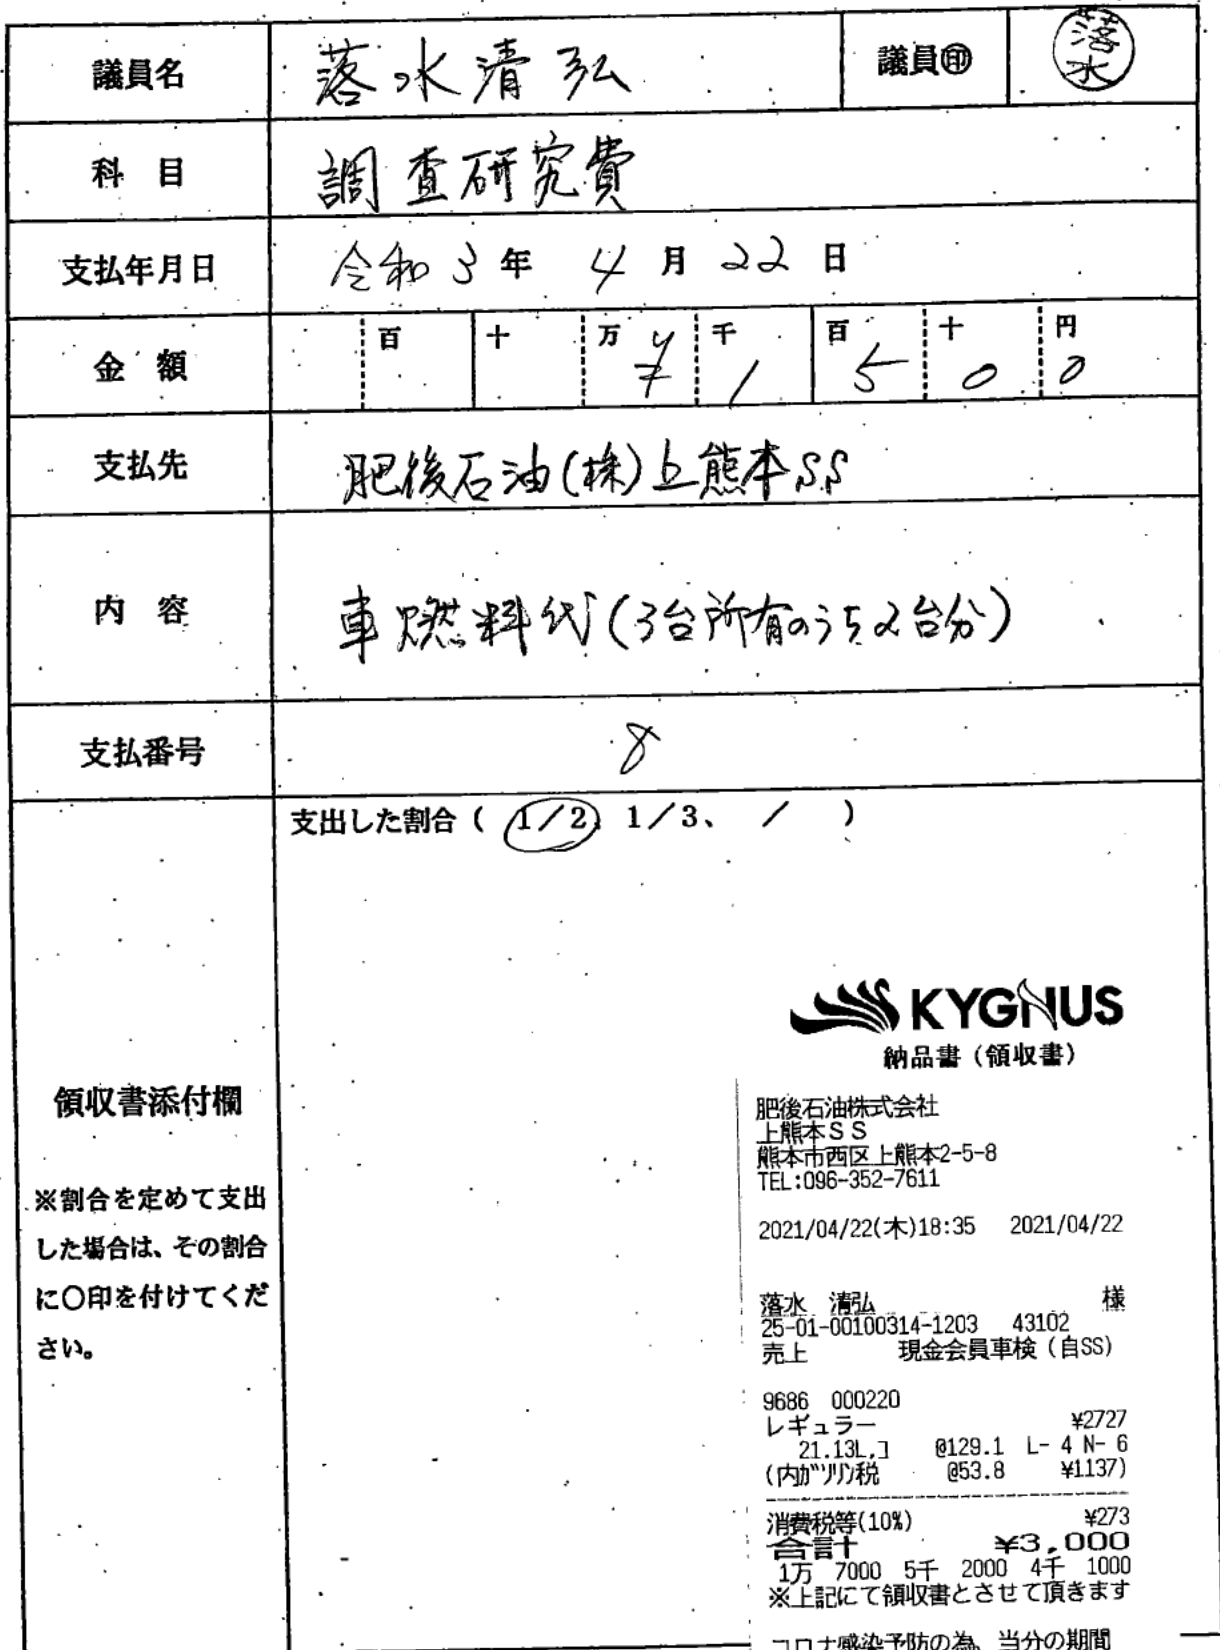 議員名 落水清弘 議員㊞ 落水
科 目 調査研究費
支払年月日 令和3年 4月 22日
金 額 百 十 万 ¥ 千 1 百 5 十 0 円 0
支払先 肥後石油(株)上熊本SS
内 容 車燃料代(3台所有のうち2台分)
支払番号 8
支出した割合( 1/2、1/3、 / )
KYGNUS
納品書(領収書)
領収書添付欄
※割合を定めて支出
した場合は、その割合
に〇印を付けてくだ
さい。
肥後石油株式会社
上熊本SS
熊本市西区上熊本2-5-8
TEL:096-352-7611
2021/04/22(木)18:35 2021/04/22
落水 清弘 様
25-01-00100314-1203 43102
売上 現金会員車検(自SS)
9686 000220
レギュラー ¥2727
21.13L,コ @129.1 L- 4 N- 6
(内ガソリン税 @53.8 ¥1137)
消費税等(10%) ¥273
合計 ¥3,000
1万 7000 5千 2000 4千 1000
※上記にて領収書とさせて頂きます
コロナ感染予防の為、当分の期間